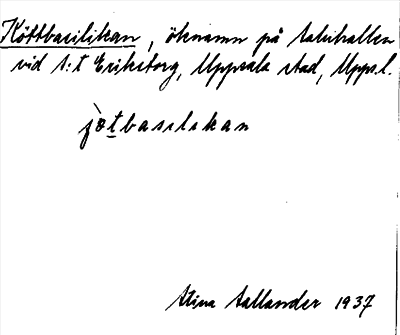 Köttbasilikan, öknamn på saluhallen
vid S:t Erikstorg, Uppsala stad, Uppl.
jòtbasilikan
Stina Sallander 1937